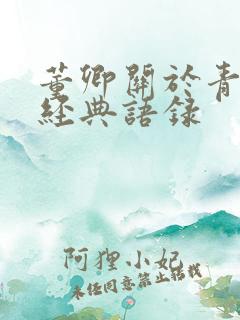 董卿關於青
經典語录
阿狸小妃
未经同意禁止转载